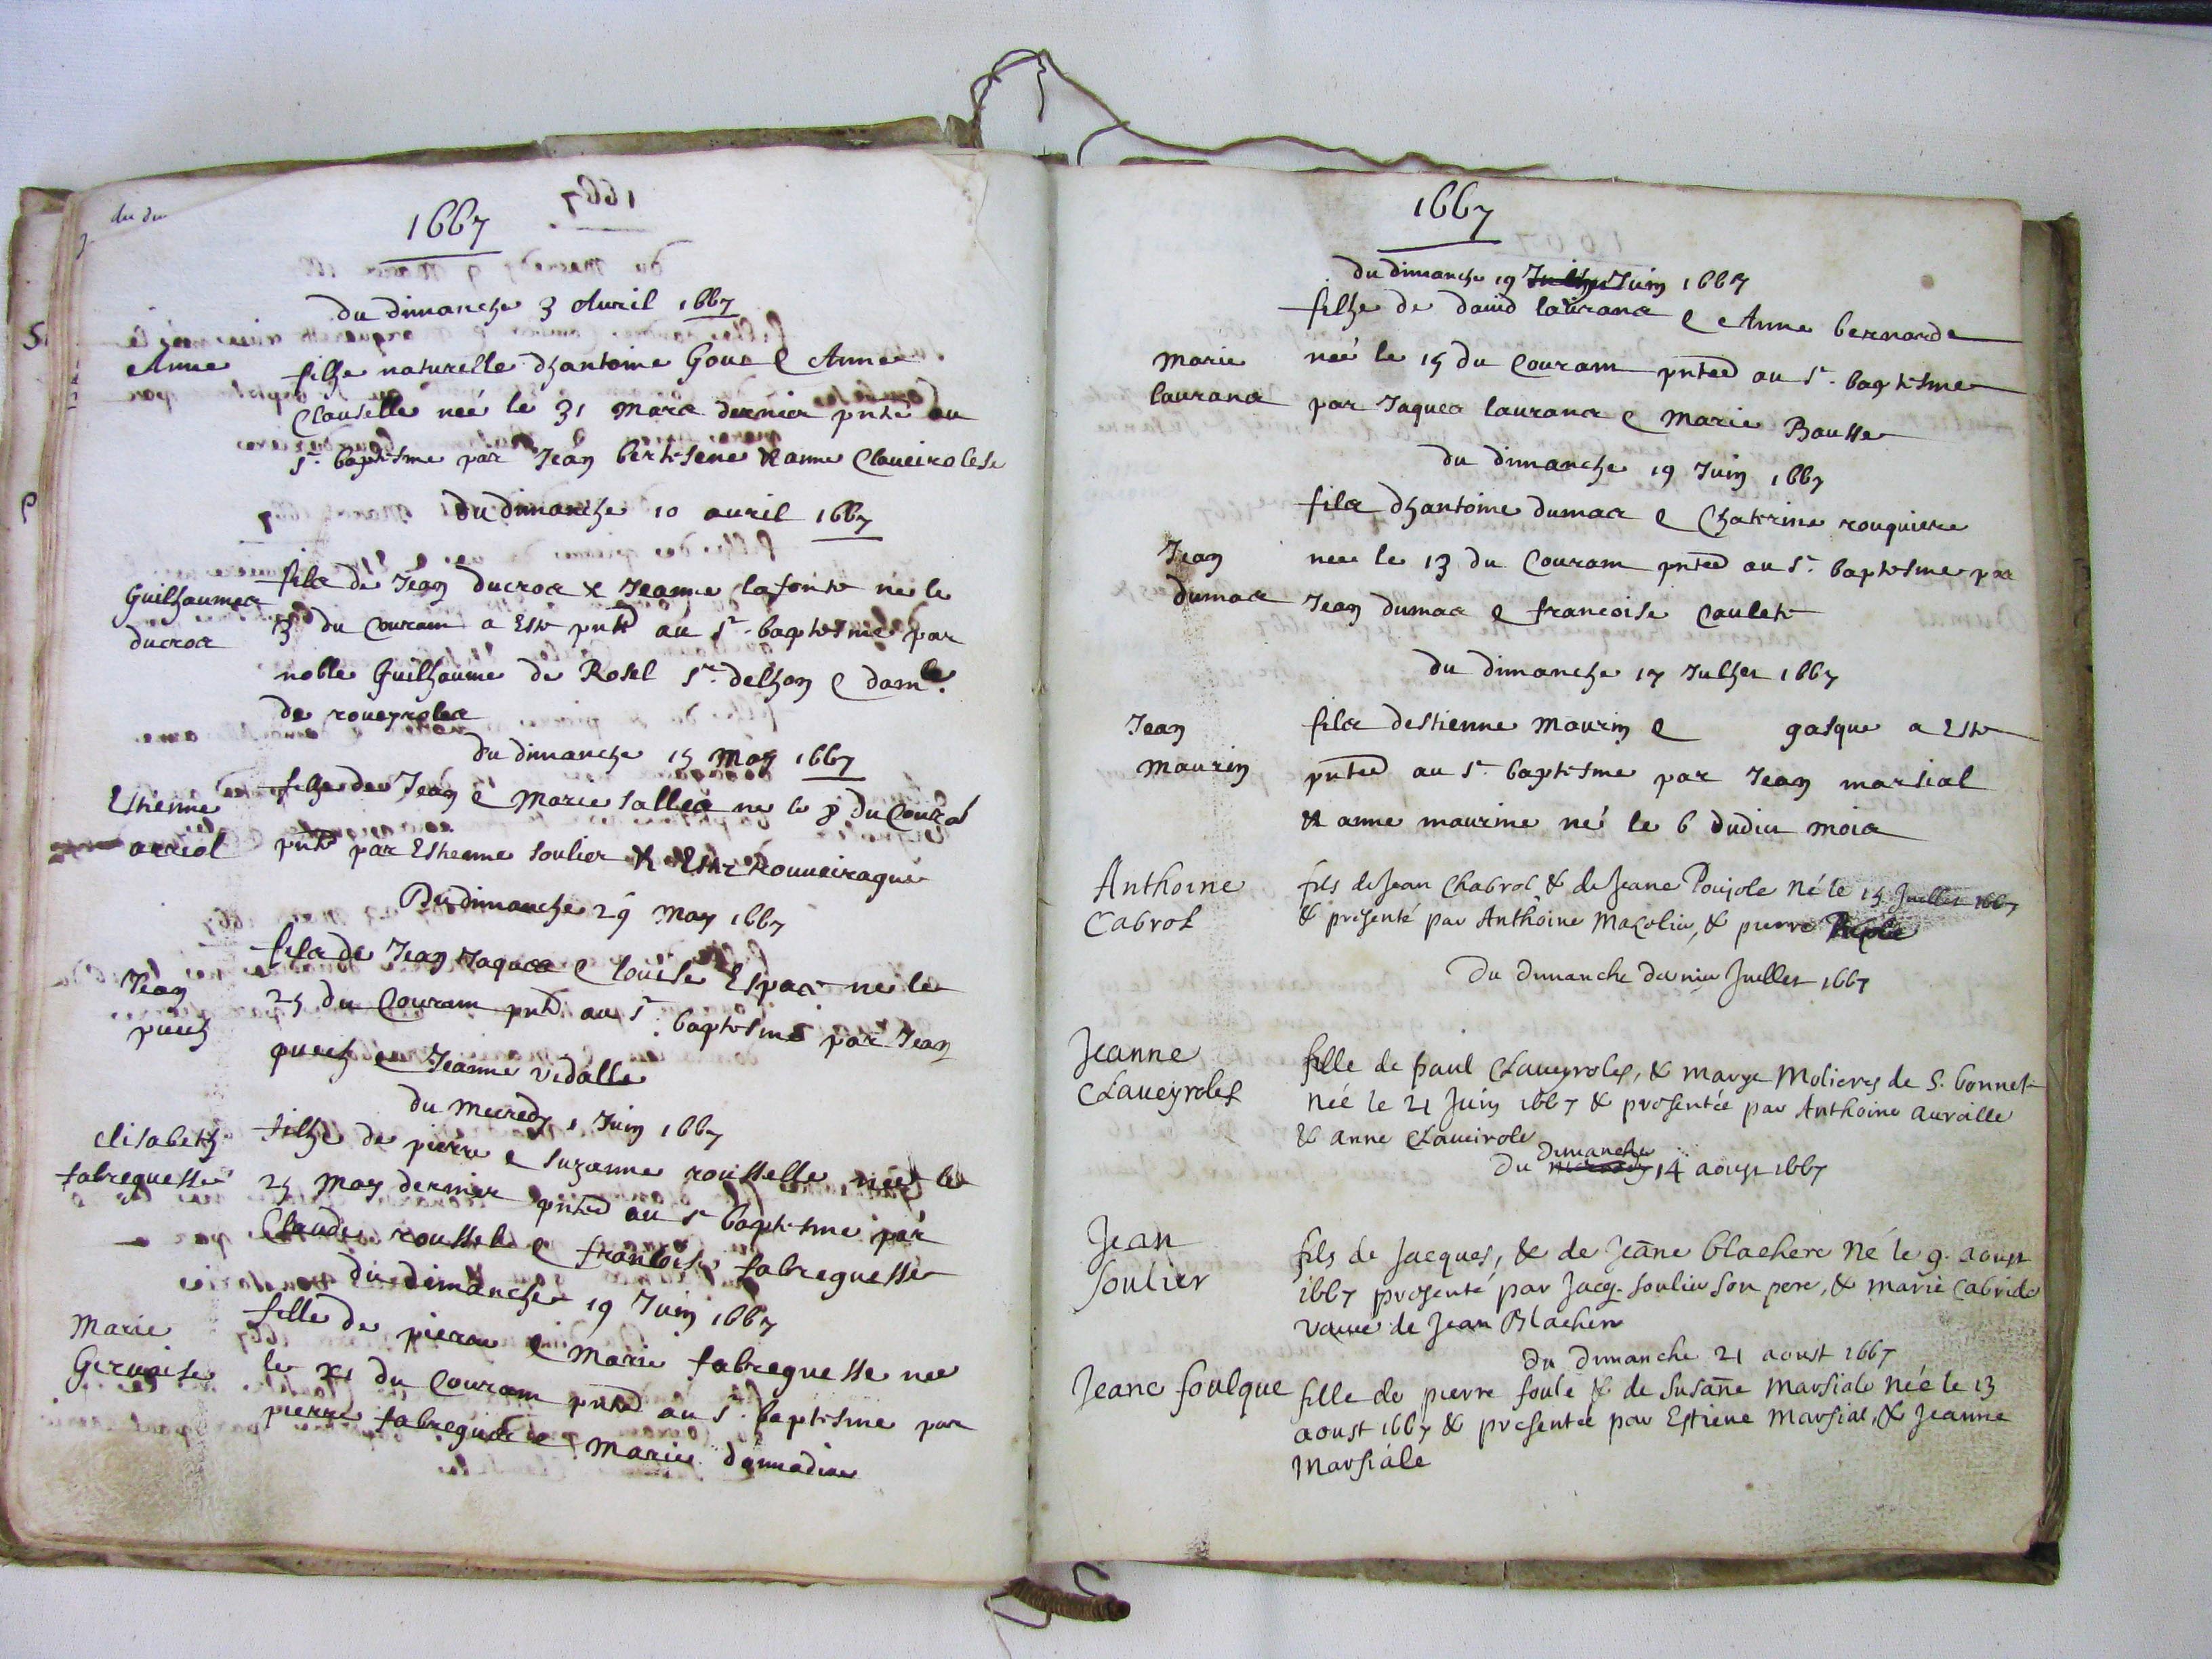 du du
1667
du dimanche 3 Auril 1667
Anne
filhe naturelle dhantoine Goue & Anne
Clauselle neé le 31 mars dernier pnté au
St. baptesme par Jean & anne Claueirolese
du dimanche 10 auril 1667
Guilhaumes
ducros
fils de Jean ducros & Jeanne lafonte né le
3 du Couram a Este pnté au St. baptesme par
noble Guilhaume de Rosel Sr. delhom & damle.
de roueyroles
du dimanche 15 May 1667
Estienne
arriol
filhe de Jean & Marie Salles ne le 8 du
pnté par Estienne Soulier & Ester
Du dimanche 29 May 1667
Jean
puech
fils de Jean Jaques & louise Espas né le
25 du Couram pnté au St. baptesme par Jean
puech & Jeanne vidalle
du mecredy 1 Juin 1667
elisabeth
fabreguesse
filhe de pierre & suzanne rousselle neé le
25 May dernier pnted au St baptesme par
Claude roussel & francoise fabreguesse
du dimanche 19 Juin 1667
Marie
Geruaise
fille de pierre & Marie fabreguesse nee
le xi du Couram pnted au St. baptesme par
pierre fabregue & Marie
1667
du dimanche 19 Juin 1667
filhe de dauid laurans & Anne bernarde
Marie
laurans
neé le 15 du Couram pnted au St. baptesme
par Jaques laurans & Marie Bausse
du dimanche 19 Juin 1667
fils dhantoine dumas & Chaterine rouquiere
Jean
dumas
nee le 13 du Couram pnted au St. baptesme par
Jean dumas & francoise Caulete
du dimanche 17 Julhet 1667
Jean
maurin
fils destienne Maurin & gasque a Este
pnted au St. baptesme par Jean marsial
& anne maurine né le 6 dudit mois
Anthoine
Cabrol
fils de Jean Chabrol & de Jeane Poujole Né le 15 Juillet 1667
& presenté par Anthoine Mazolier, & pierre
Du dimanche dernier Juillet 1667
Jeanne
Claueyroles
fille de paul Claueyroles, & marge Molieres de S. bonnet
Née le 21 Juin 1667 & presentée par Anthoine auraille
& anne Claueirole
dimanche
Du 14 aoust 1667
Jean
Soulier
fils de Jacques, & de Jeāne blachere Né le 9. aoust
1667 presenté par Jacq. soulier son pere, & marie Cabride
vaeue de Jean Blachere
Du dimanche 21 aoust 1667
Jeane foulque
fille de pierre foulc & de Susāne Marsiale Née le 13
aoust 1667 & presentée par Estiene Marsial, & Jeanne
Marsiale